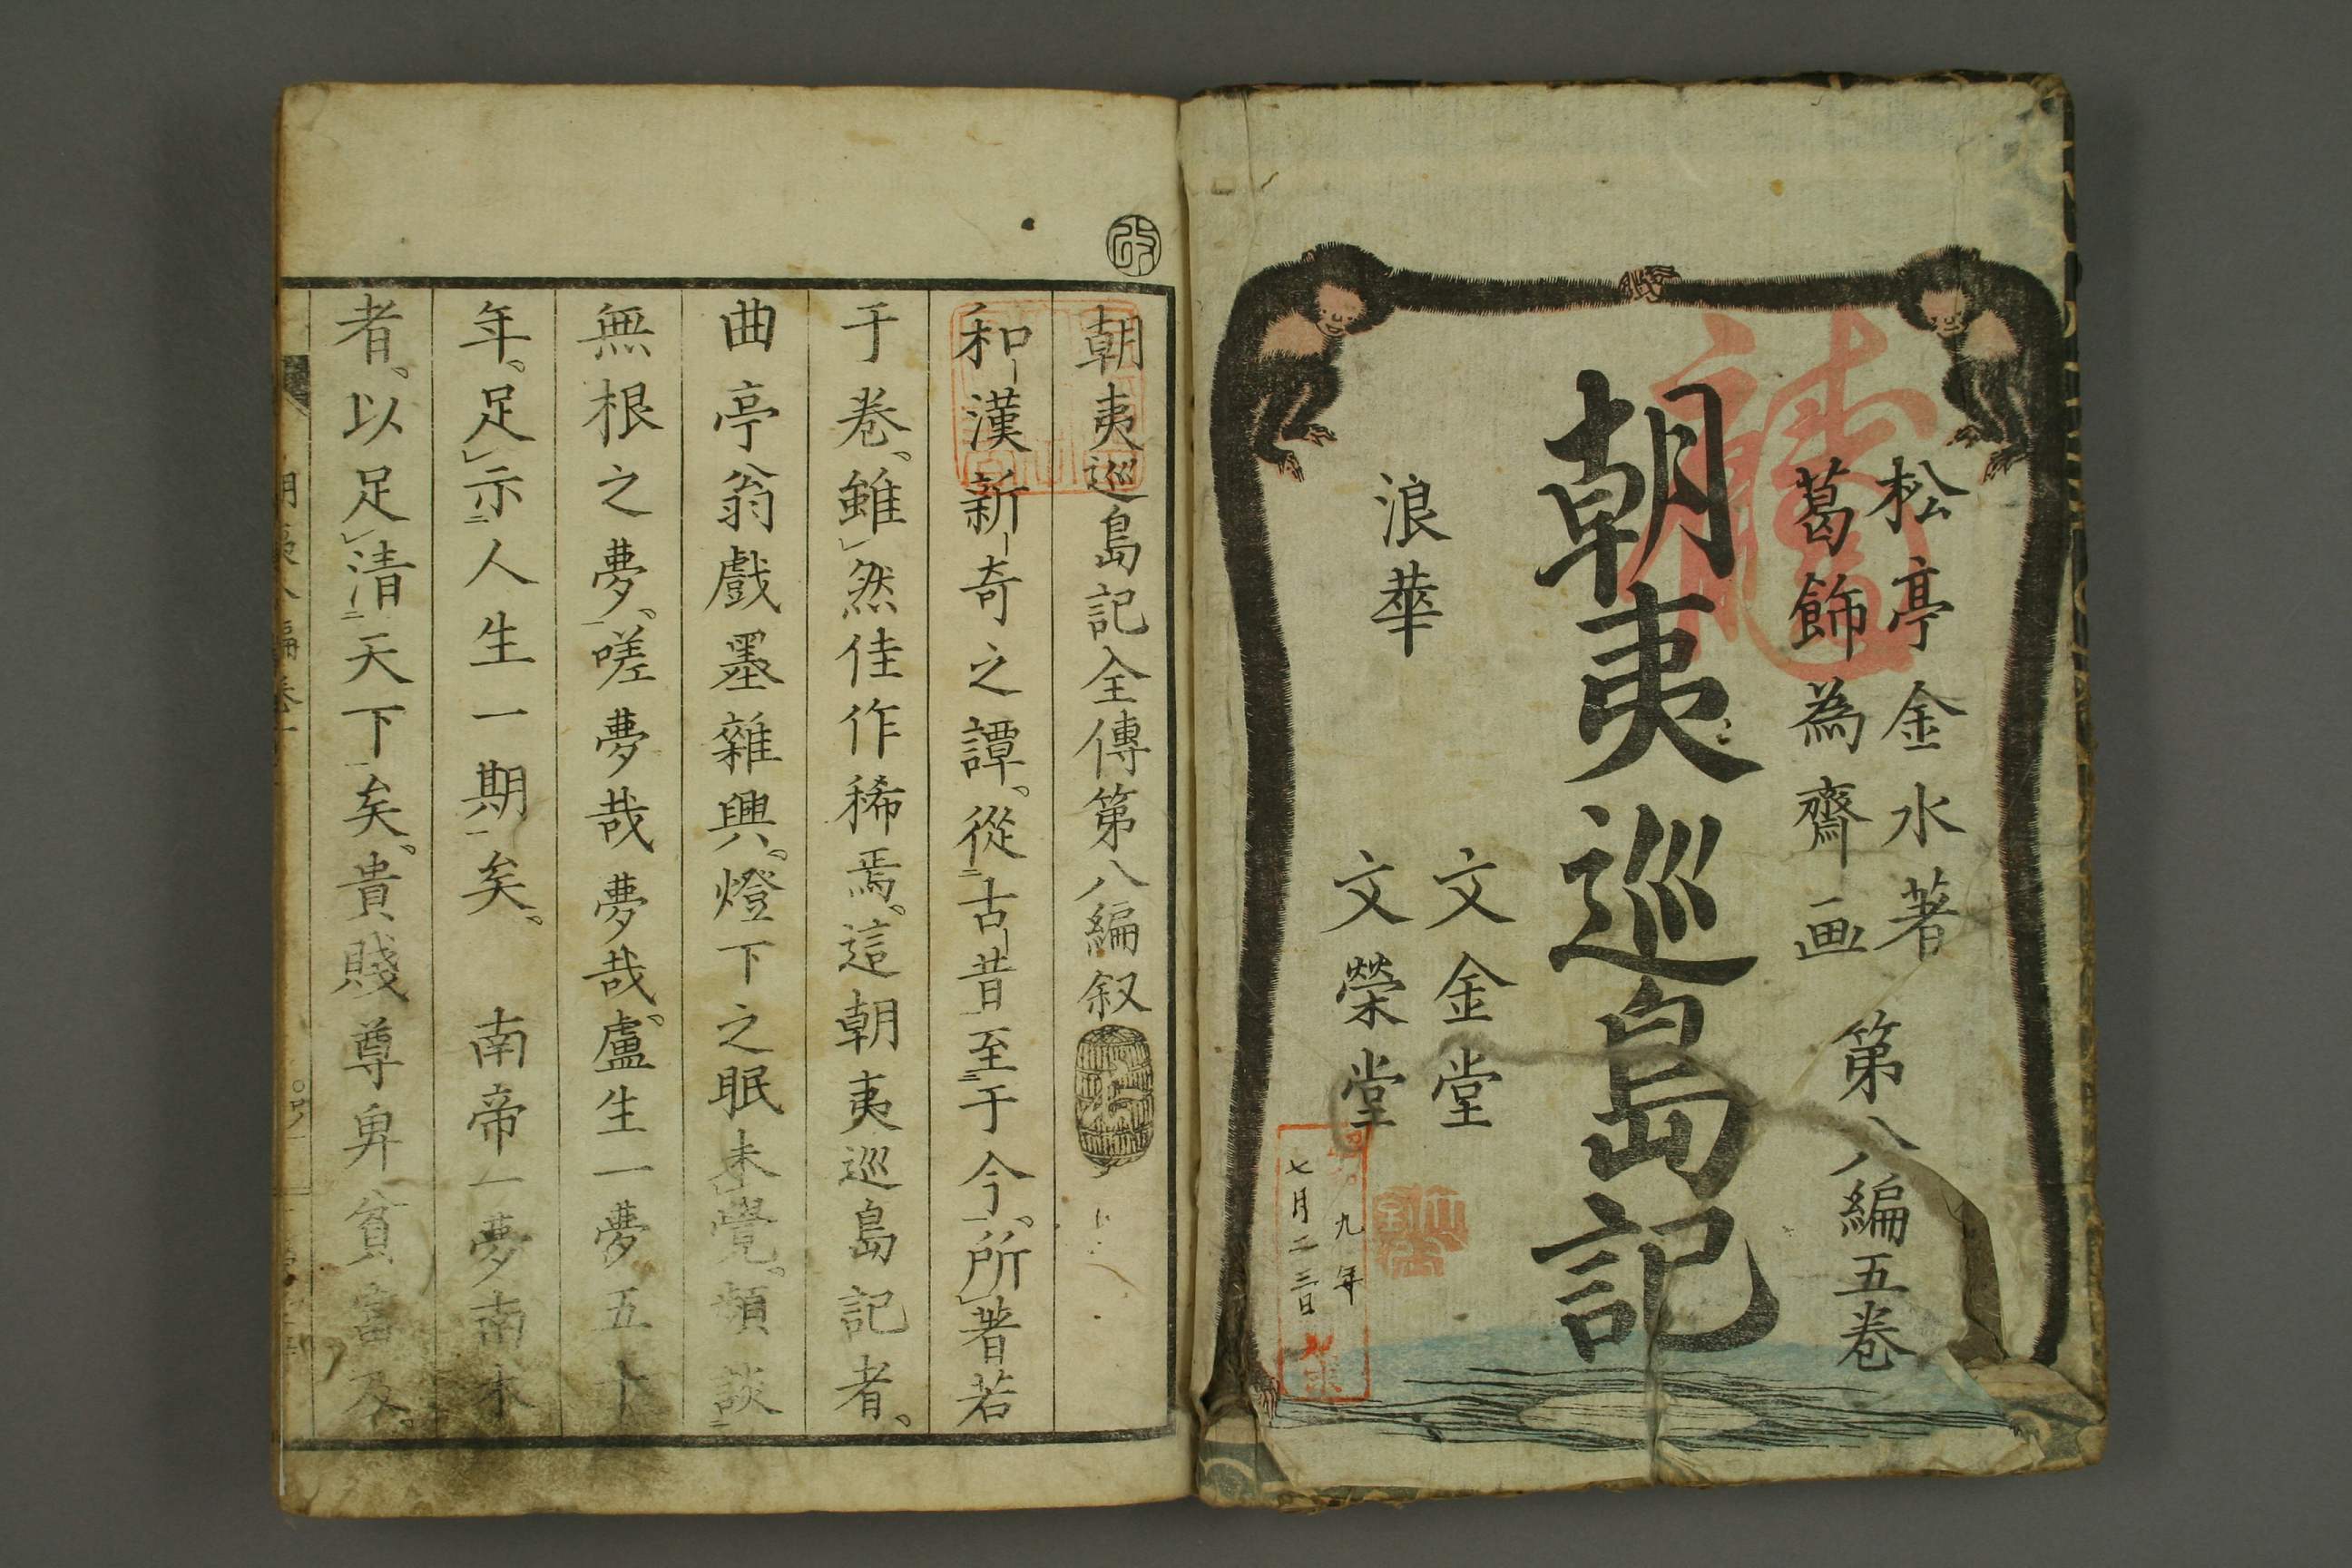 松亭金水著
葛飾為齋画
第八編五巻
朝夷巡島記
浪華
文金堂
文榮堂
九年
七月二三日
改
朝夷巡島記全傳第八編叙
和漢新奇之譚。從古昔至于今。所著若
于巻。雖然佳作稀焉。這朝夷巡島記者。
曲亭翁戲墨雜興。燈下之眠未覺。頻談
無根之夢。嗟夢哉夢哉。盧生一夢五十
年。足示人生一期矣。　南帝一夢南木
者。以足清天下矣。貴賤尊卑貧富及。